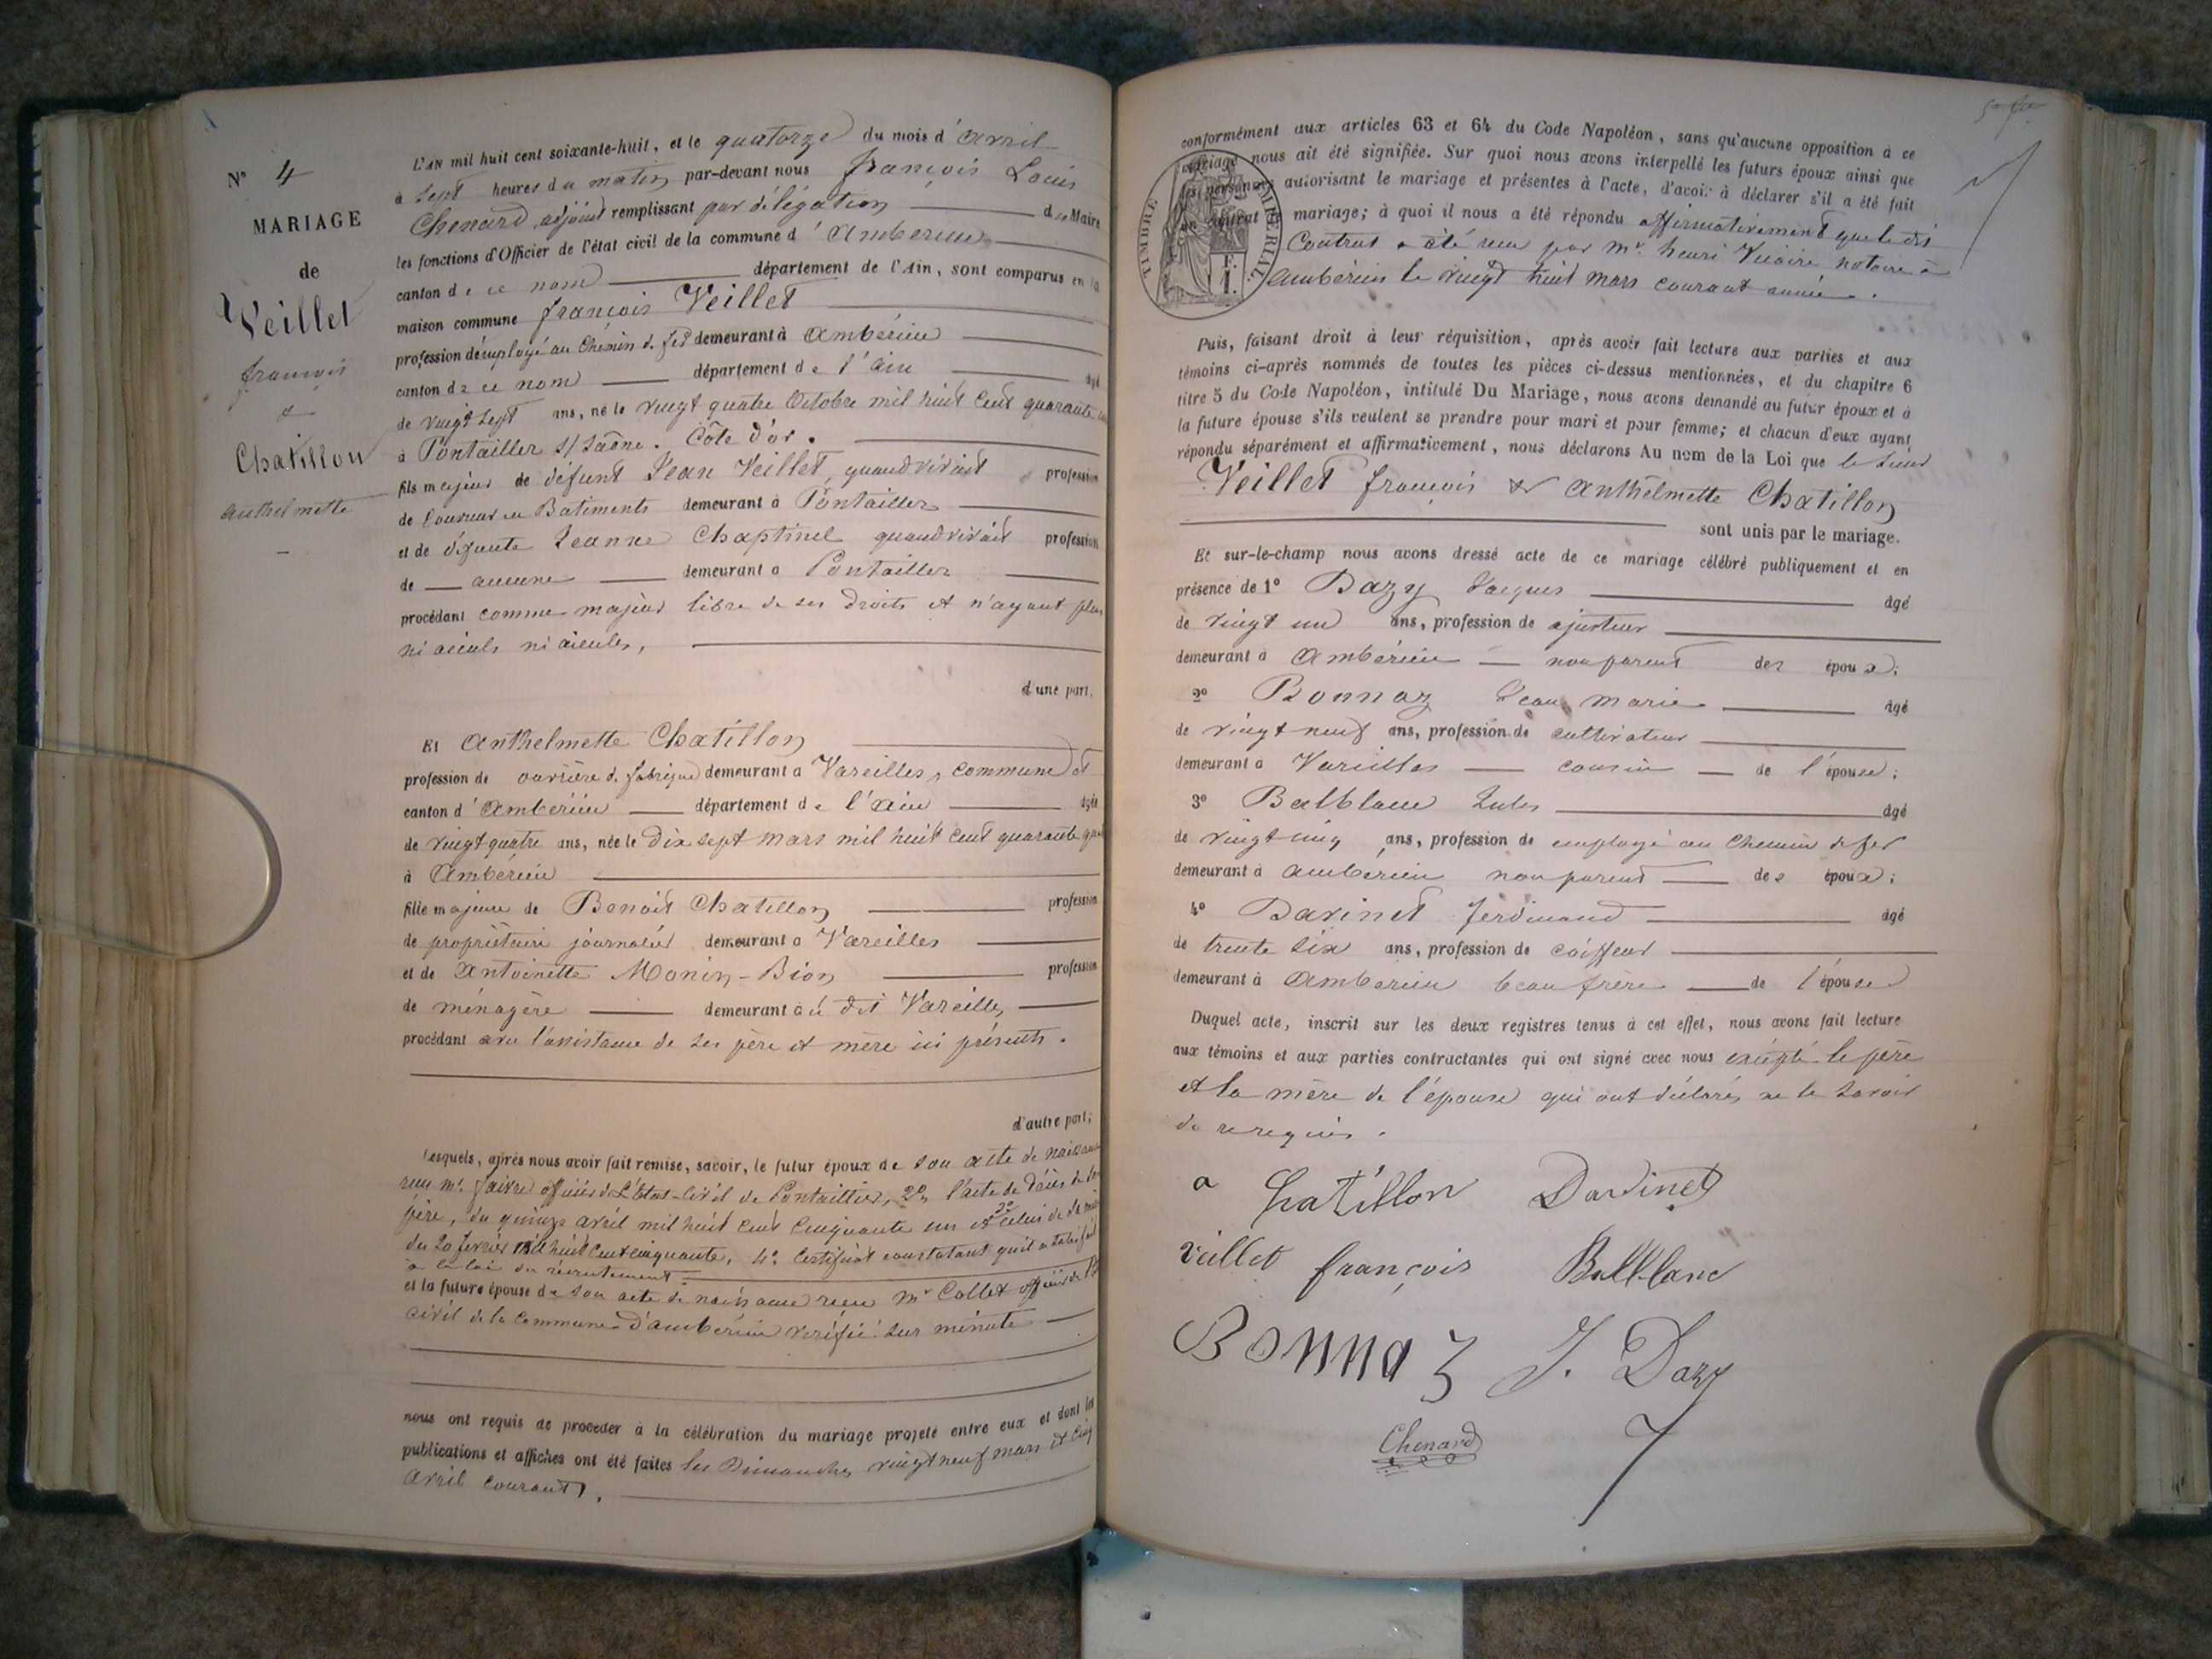 N° 4
MARIAGE
de
Veillet
françois
&
Chatillon
anthelmette
L'AN mil huit cent soixante-huit, et le quatorze du mois d'avril
à sept heures du matin par-devant nous françois Louis
Chenard, adjoint remplissant par délégation du Maire
les fonctions d'Officier de l'état civil de la commune d'Ambérieu
canton de ce nom département de l'Ain, sont comparus en la
maison commune françois Veillet
profession d'employé au Chemin de fer demeurant à Ambérieu
canton de ce nom département de l'ain âgé
de vingt sept ans, né le vingt quatre Octobre mil huit cent quarante
à Pontailler s/ Saône. Côte d'or.
fils majeur de défunt Jean Veillet, quand vivait profession
de Couvreur en Batiments demeurant à Pontailler
et de défunte Jeanne Chaptinel quand vivait profession
de aucune demeurant à Pontailler
procédant comme majeur libre de ses droits et n'ayant plus
ni aieuls ni aieules,
d'une part,
Et Anthelmette Chatillon
profession de ouvrière de fabrique demeurant à Vareilles, commune et
canton d'Ambérieu département de l'ain âgée
de vingt quatre ans, née le Dix sept mars mil huit cent quarante
à Ambérieu
fille majeure de Benoit Chatillon profession
de propriétaire journalier demeurant à Vareilles
et de Antoinette Monin-Bion profession
de ménagère demeurant à dit Vareilles
procédant avec l'assistance de ses père et mère ici présents.
d'autre part;
Lesquels, après nous avoir fait remise, savoir, le futur époux de son acte de naissance
reçu mr. faivre officier de l'Etat-Civil de Pontaillier, 2° l'acte de décès de son
père, du quinze avril mil huit cent cinquante un et 3° celui de sa mère
du 20 février mil huit cent cinquante, 4° Certificat constatant qu'il a satisfait
à la loi du recrutement.
et la future épouse de son acte de naissance reçu mr Collet officier de l'Etat
civil de la commune d'ambérieu vérifié sur minute
nous ont requis de procéder à la célébration du mariage projeté entre eux et dont les
publications et affiches ont été faites les Dimanches vingt neuf mars et cinq
avril courant.
conformément aux articles 63 et 64 du Code Napoléon, sans qu'aucune opposition à ce
mariage nous ait été signifiée. Sur quoi nous avons interpellé les futurs époux ainsi que
les personnes autorisant le mariage et présentes à l'acte, d'avoir à déclarer s'il a été fait
un contrat de mariage; à quoi il nous a été répondu affirmativement que le dit
Contrat a été reçu par mr. henri Vicaire notaire à
ambérieu le vingt huit mars courant année.
TIMBRE IMPÉRIAL
F.
1.
Puis, faisant droit à leur réquisition, après avoir fait lecture aux parties et aux
témoins ci-après nommés de toutes les pièces ci-dessus mentionnées, et du chapitre 6
titre 5 du Code Napoléon, intitulé Du Mariage, nous avons demandé au futur époux et à
la future épouse s'ils veulent se prendre pour mari et pour femme; et chacun d'eux ayant
répondu séparément et affirmativement, nous déclarons Au nom de la Loi que le sieur
Veillet françois & Anthelmette Chatillon
sont unis par le mariage.
Et sur-le-champ nous avons dressé acte de ce mariage célébré publiquement et en
présence de 1° Dazy Jacques âgé
de vingt un ans, profession de ajusteur
demeurant à Ambérieu non parent des époux;
2° Bonnaz Jean marie âgé
de vingt neuf ans, profession de cultivateur
demeurant à Vareilles cousin de l'épouse;
3° Balblanc Jules âgé
de vingt cinq ans, profession de employé au Chemin de fer
demeurant à ambérieu non parent des époux;
4° Davinet ferdinand âgé
de trente six ans, profession de coiffeur
demeurant à Ambérieu beau frère de l'épouse
Duquel acte, inscrit sur les deux registres tenus à cet effet, nous avons fait lecture
aux témoins et aux parties contractantes qui ont signé avec nous excepté le père
et la mère de l'épouse qui ont déclarés ne le savoir
de ce requis.
a Chatillon Davinet
veillet françois Ballblanc
Bonnaz J. Dazy
Chenard